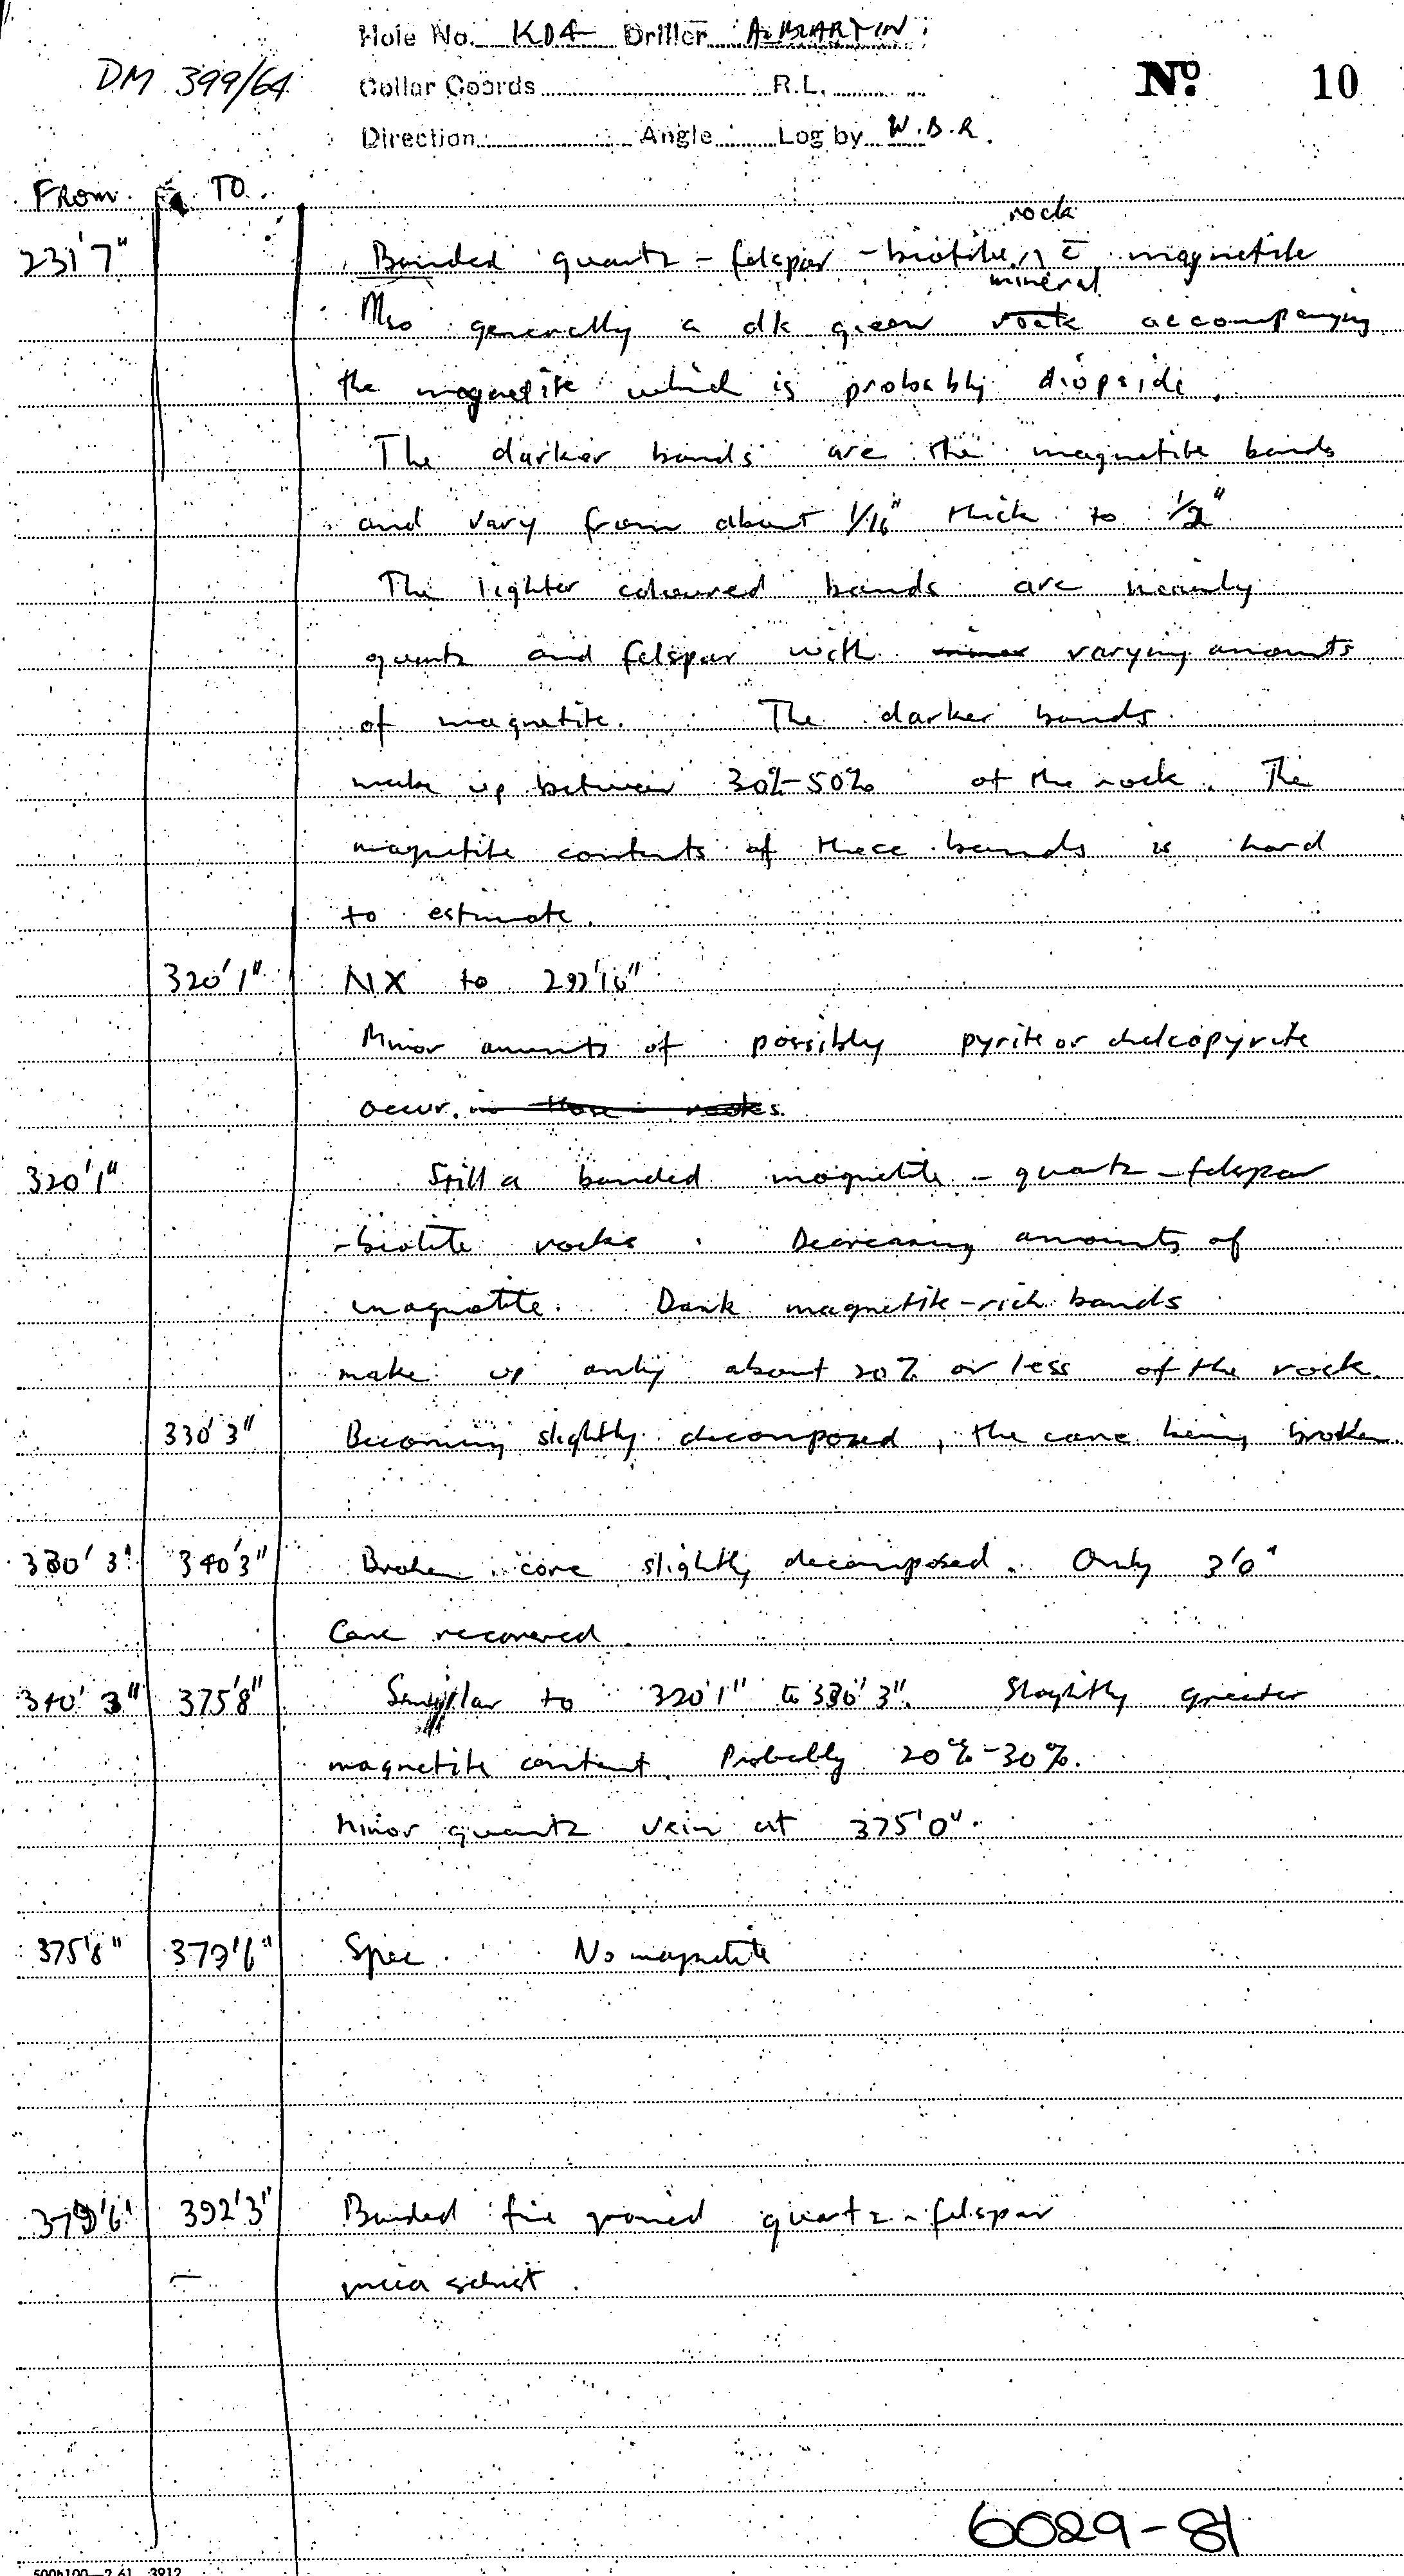 Hole No. KD4 Driller A. MARTIN
DM 399/64
Collar Coords R.L.
No. 10
Direction Angle Log by W.B.R.
FROM TO
rock
231'7" Banded quartz - felspar - biotite ∧ c̄ magnetite
mineral
Also generally a dk green rock accompanying
the magnetite which is probably diopside.
The darker bands are the magnetite bands
and vary from about 1/16" thick to 1/2"
The lighter coloured bands are mainly
quartz and felspar with minor varying amounts
of magnetite. The darker bands
make up between 30%-50% of the rock. The
magnetite contents of these bands is hard
to estimate.
320'1" NX to 292'10"
Minor amounts of possibly pyrite or chalcopyrite
occur. in these rocks.
320'1" Still a banded magnetite - quartz - felspar
- biotite rocks. Decreasing amounts of
magnetite. Dark magnetite-rich bands
make up only about 20% or less of the rock.
330'3" Becoming slightly decomposed, the core being broken.
330'3" 340'3" Broken core slightly decomposed. Only 3'0"
core recovered.
340'3" 375'8" Similar to 320'1" to 330'3". Slightly greater
magnetite content. Probably 20%-30%.
Minor quartz vein at 375'0".
375'8" 379'6" Spec. No magnetite
379'6" 392'3" Banded fine grained quartz - felspar
mica schist.
6029-81
500h100—2.61 3912